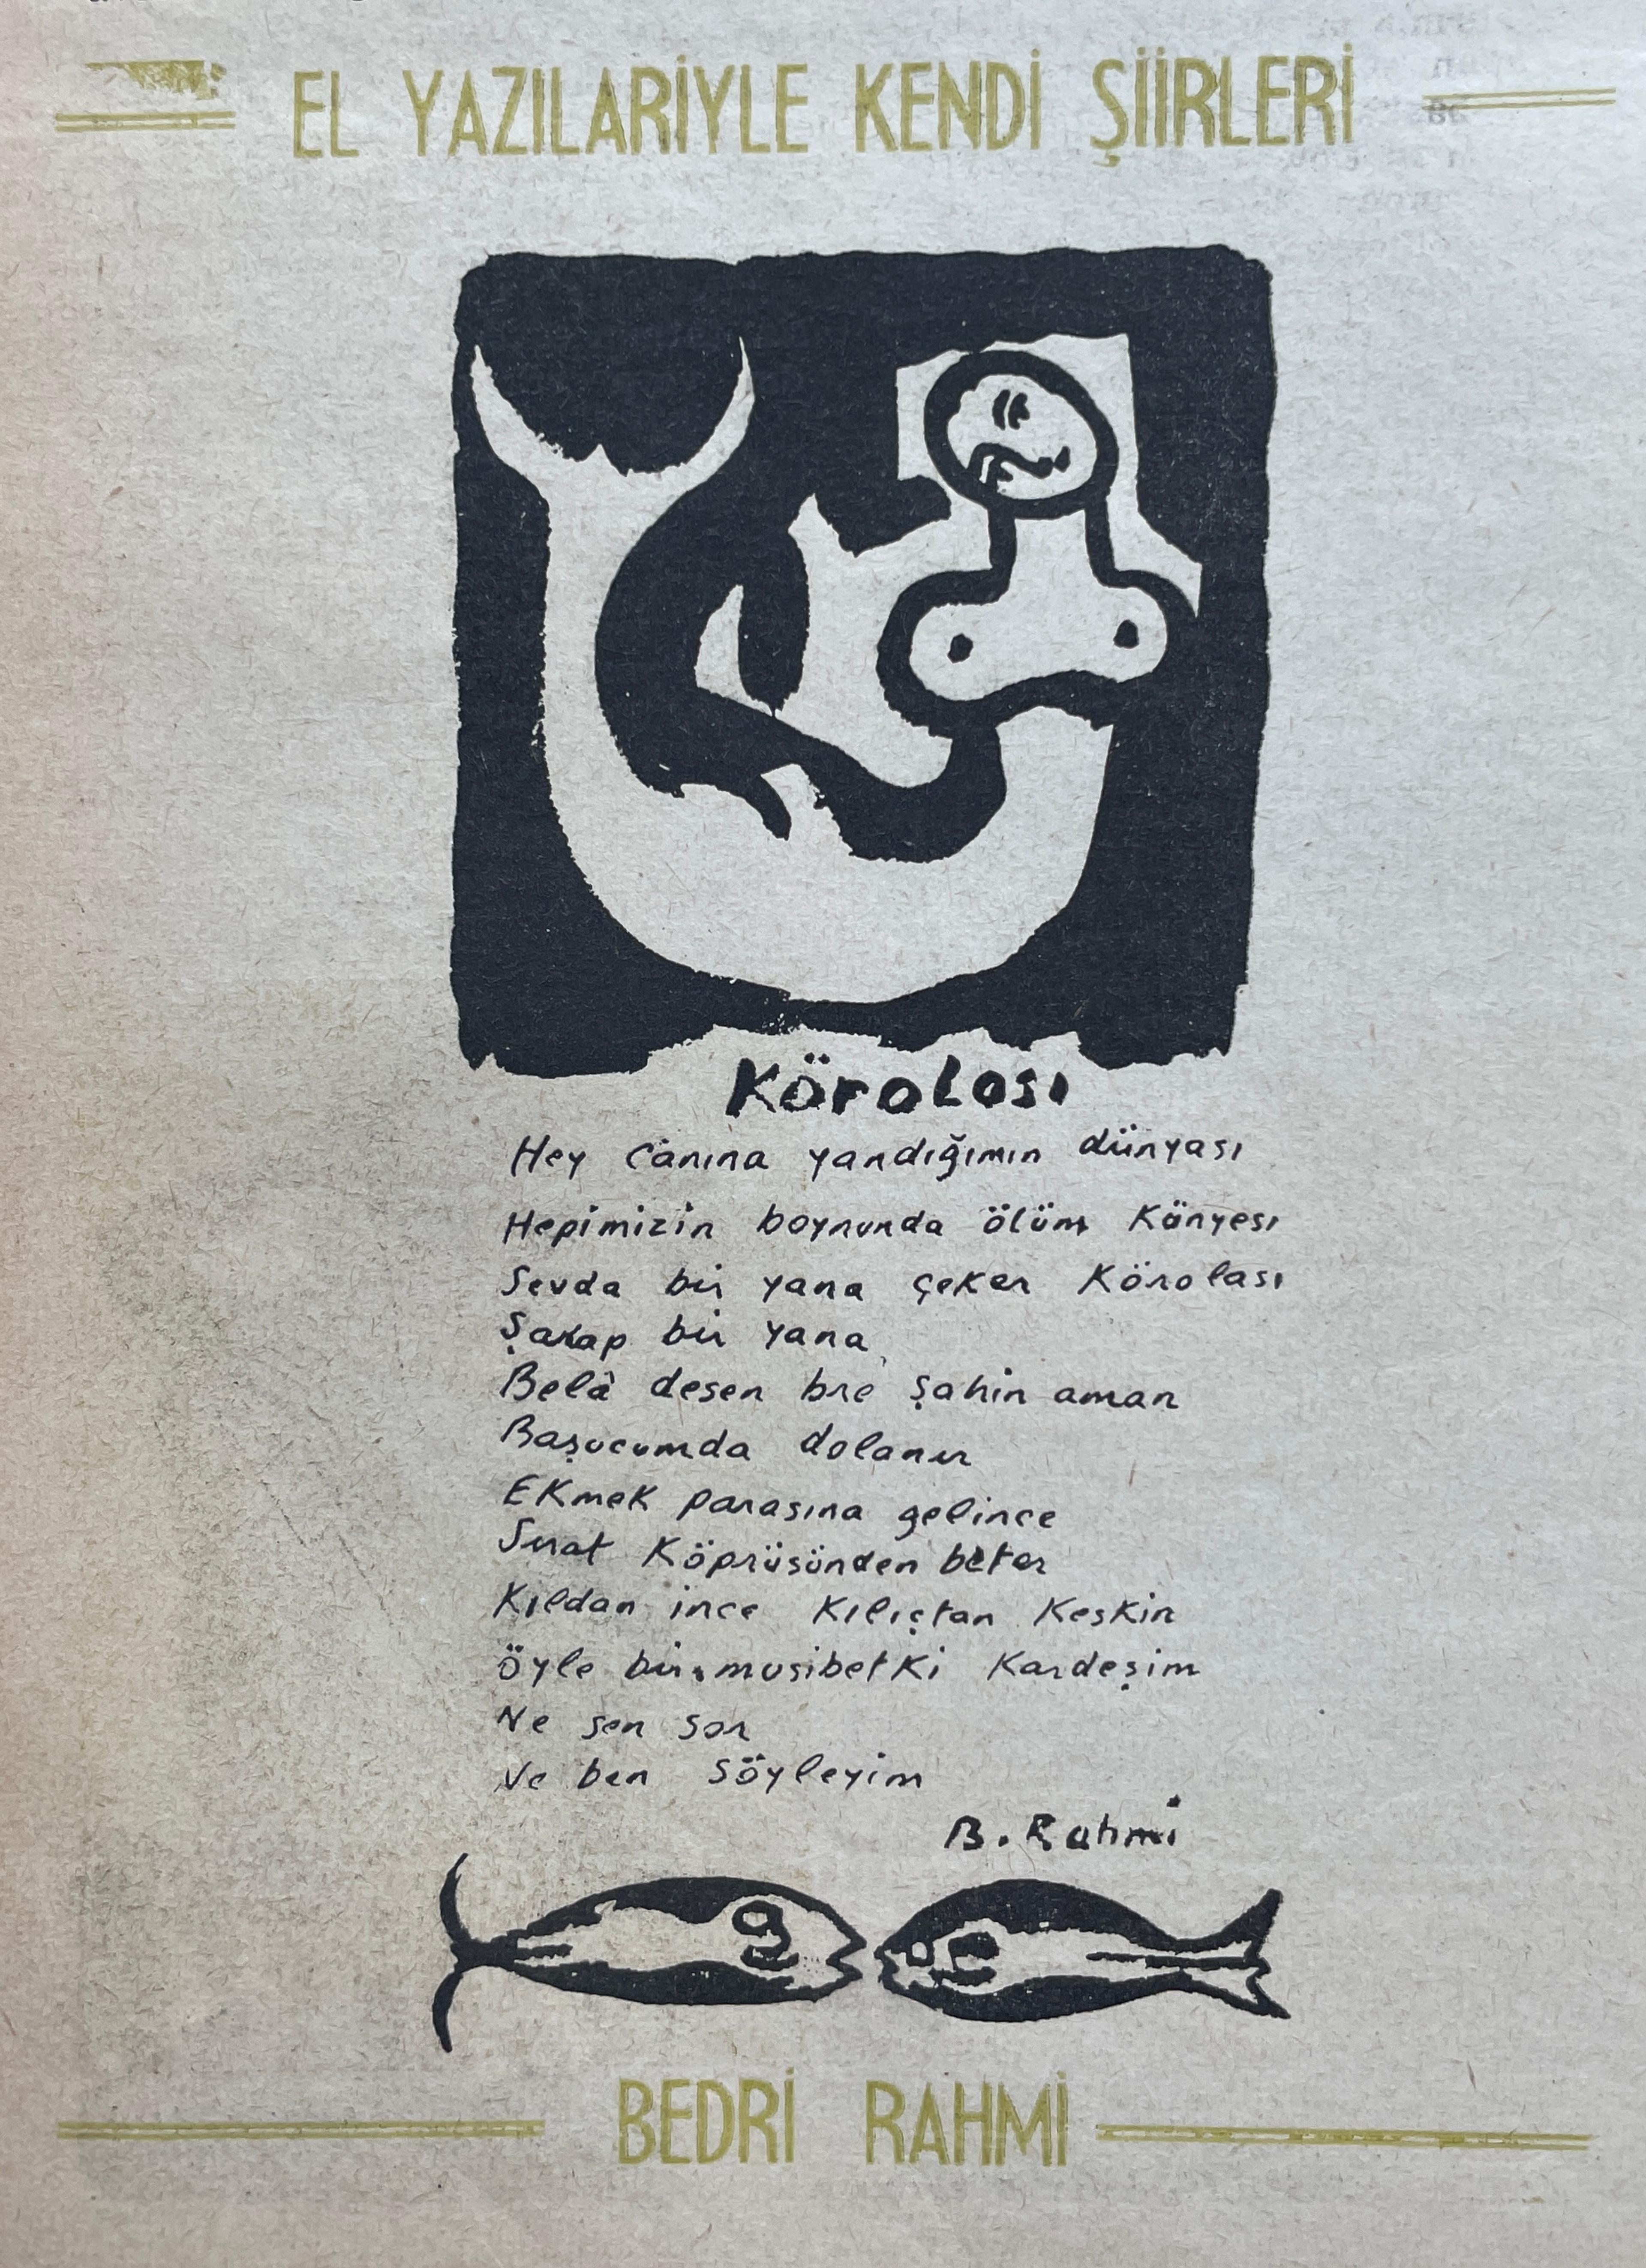 EL YAZILARİYLE KENDİ ŞİİRLERİ
Körolası
Hey Canına yandığımın dünyası
Hepimizin boynunda ölüm Künyesi
Sevda bir yana çeker Körolası
Şarap bir yana
Belâ desen bre şahin aman
Başucumda dolanır
Ekmek parasına gelince
Sırat Köprüsünden beter
Kıldan ince Kılıçtan Keskin
Öyle bir musibet Ki Kardeşim
Ne sen sor
Ne ben söyleyim
B. Rahmi
BEDRİ RAHMİ